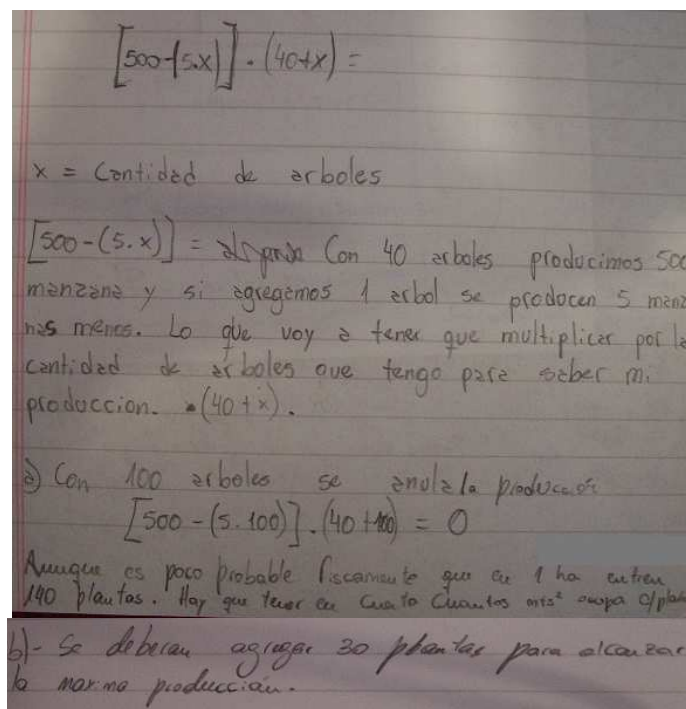 [500-(5.x)] . (40+x) =
x = Cantidad de arboles
[500-(5.x)] = Con 40 arboles producimos 500
manzana y si agregamos 1 arbol se producen 5 manza
nas menos. Lo que voy a tener que multiplicar por la
cantidad de arboles que tengo para saber mi
produccion. .(40+x).
a) Con 100 arboles se anula la produccion
[500-(5.100)].(40+100) = 0
Aunque es poco probable fiscamente que en 1 ha entren
140 plantas. Hay que tener en cuenta cuantos mts² ocupa c/plan
b)- Se deberan agregar 30 plantas para alcanzar
la maxima produccion.